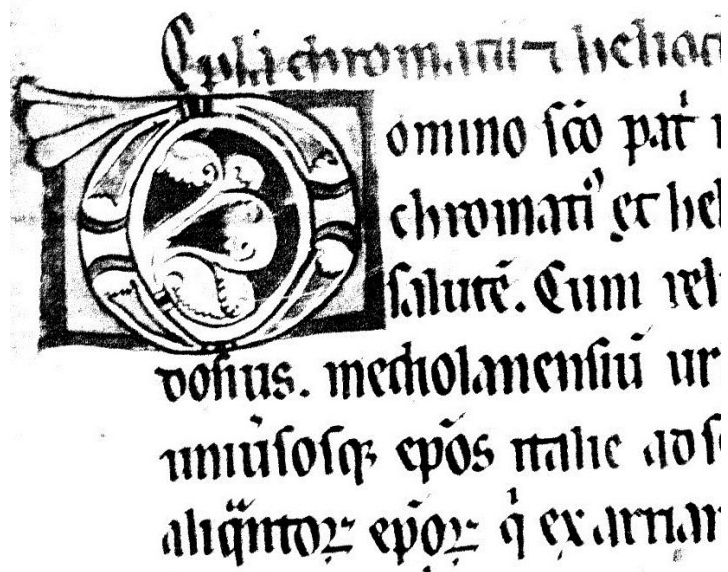 Ep̄la chromatii ⁊ heliod
Domino sc̄o pat̄
chromatiꝰ et hel
salutē. Cum rel
dosius. mediolanensiū ur
uniūsosqꝫ ep̄os italie ad
aliq̄ntoꝝ ep̄oꝝ q ex arrian